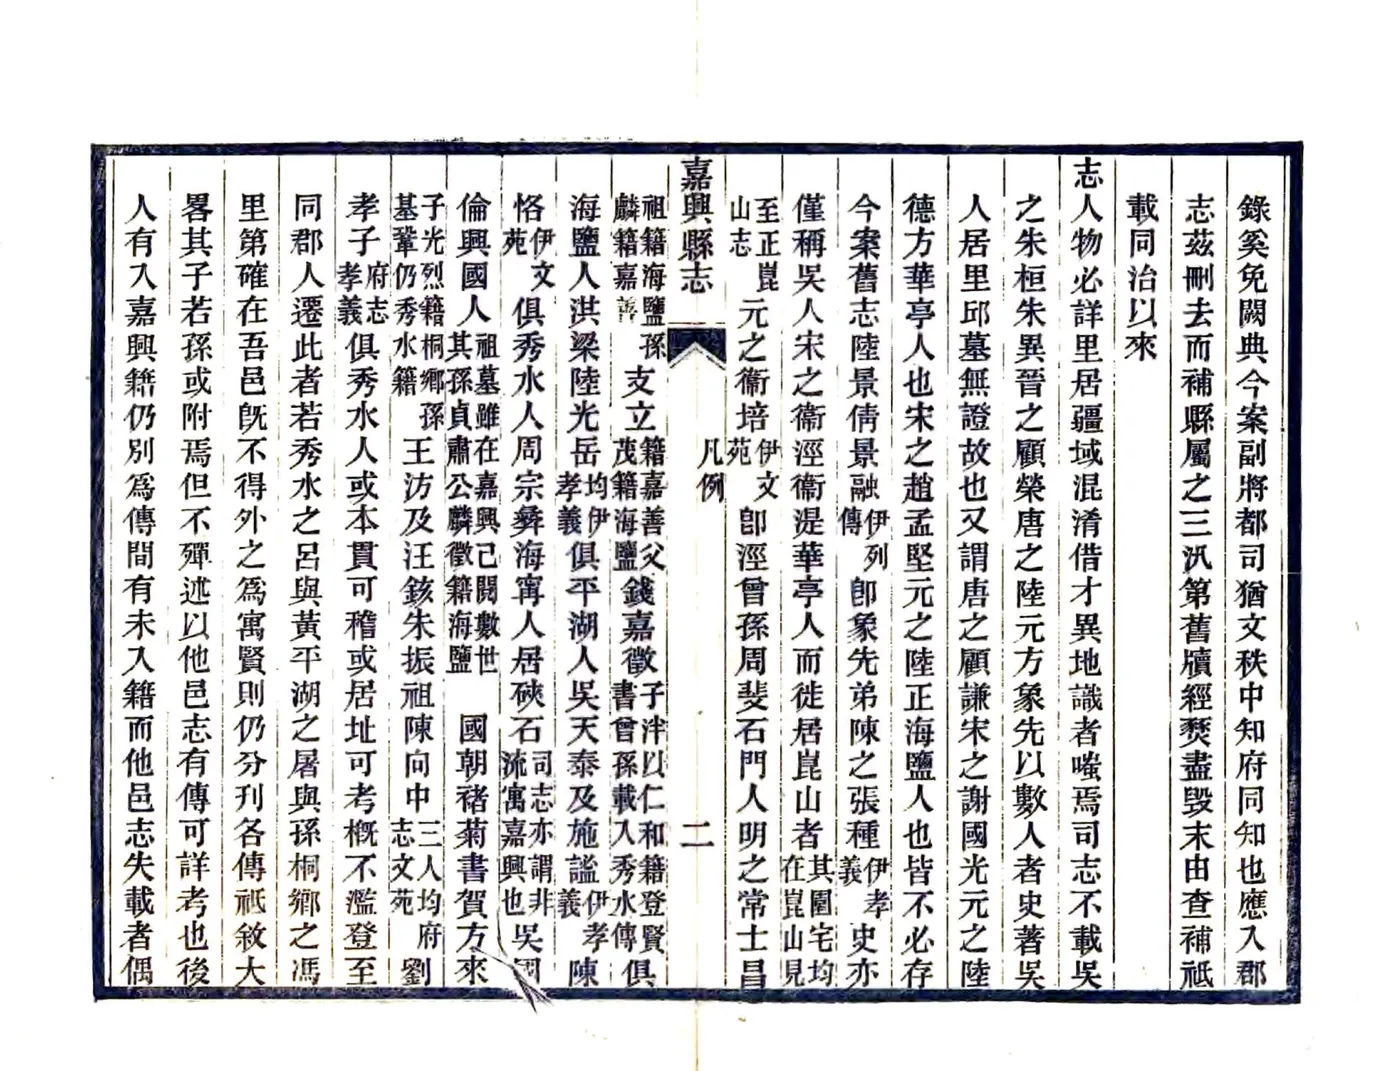 錄奚免闕典今案副將都司猶文秩中知府同知也應入郡
志茲刪去而補縣屬之三汛第舊牘經燹盡毀末由查補祗
載同治以來
志人物必詳里居疆域混淆借才異地識者嗤焉司志不載吳
之朱桓朱異晉之顧榮唐之陸元方象先以數人者史著吳
人居里邱墓無證故也又謂唐之顧謙宋之謝國光元之陸
德方華亭人也宋之趙孟堅元之陸正海鹽人也皆不必存
今案舊志陸景倩景融伊列傳卽象先弟陳之張種伊孝義史亦
僅稱吳人宋之衞涇衞湜華亭人而徙居崑山者其園宅均在崑山見
至正崑山志元之衞培伊文苑卽涇曾孫周斐石門人明之常士昌
嘉興縣志
凡例
二
祖籍海鹽孫麟籍嘉善支立籍嘉善父茂籍海鹽錢嘉徵子泮以仁和籍登賢書曾孫載入秀水傳俱
海鹽人淇梁陸光岳均伊孝義俱平湖人吳天泰及施謐伊孝義陳
恪伊文苑俱秀水人周宗彝海寗人居硤石司志亦謂非流寓嘉興也吳國
倫興國人祖墓雖在嘉興己閱數世其孫貞肅公麟徵籍海鹽國朝褚菊書賀方來
子光烈籍桐鄉孫基鞏仍秀水籍王汸及汪鋐朱振祖陳向中三人均府志文苑劉
孝子府志孝義俱秀水人或本貫可稽或居址可考槪不濫登至
同郡人遷此者若秀水之呂與黃平湖之屠與孫桐鄉之馮
里第確在吾邑旣不得外之爲寓賢則仍分刊各傳祗敘大
畧其子若孫或附焉但不殫述以他邑志有傳可詳考也後
人有入嘉興籍仍別爲傳間有未入籍而他邑志失載者偶